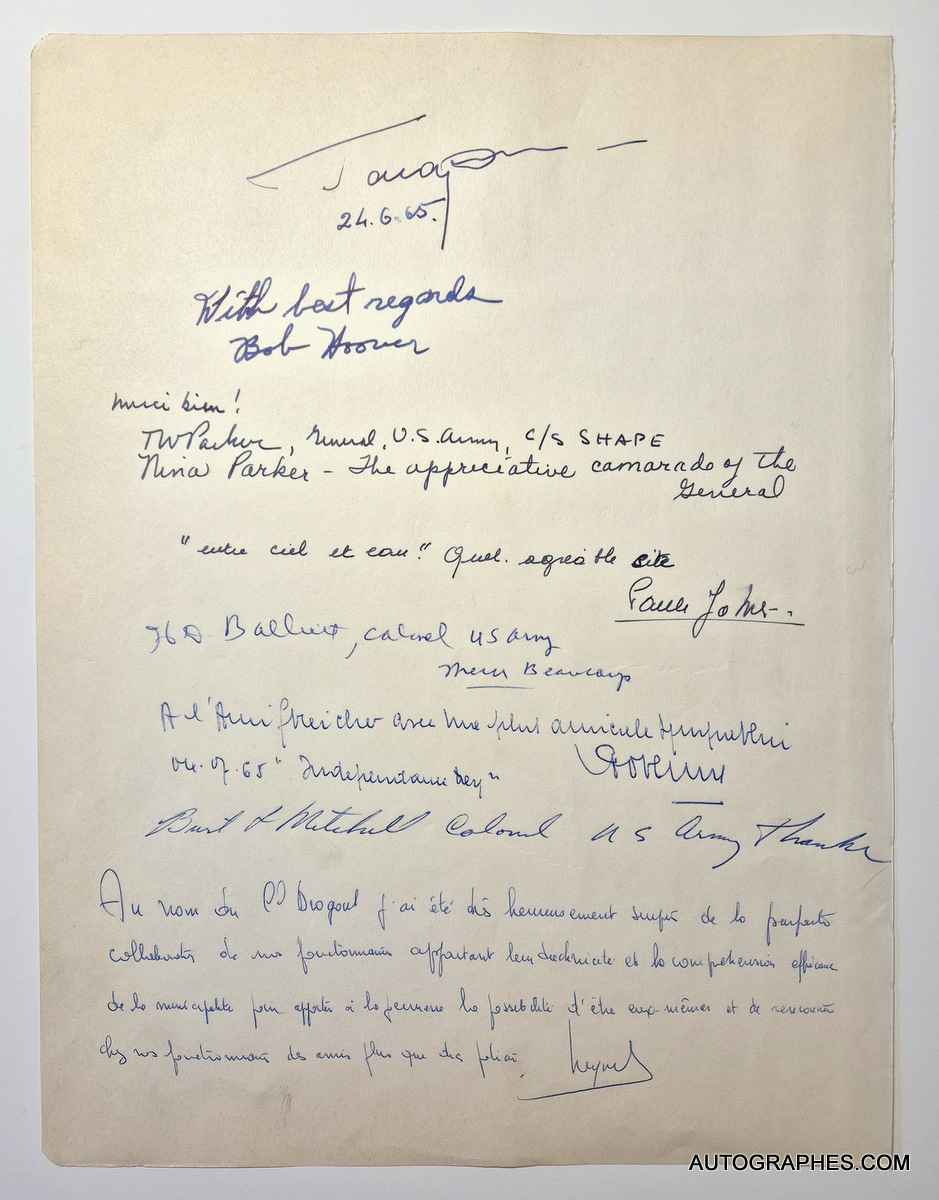 24.6.65.
With best regards
Bob Hoover
merci bien!
TWParker, General, U.S. Army, C/S SHAPE
Nina Parker - The appreciative camarado of the
General
"entre ciel et eau." Quel. agréable site
colonel US Army
Merci Beaucoup
A l'Ami avec ma plus amicale
04.07.65 "Independance Day"
Burt L Mitchell Colonel U S Army Thanks
Au nom du Drogoul j'ai été très heureusement surpris de la parfaite
collaboration de nos fonctionnaires apportant leur technicité et la compréhension efficace
de la municipalité pour apporter à la jeunesse la possibilité d'être eux-mêmes et de rencontrer
chez nos fonctionnaires des amis plus que des policiers
AUTOGRAPHES.COM